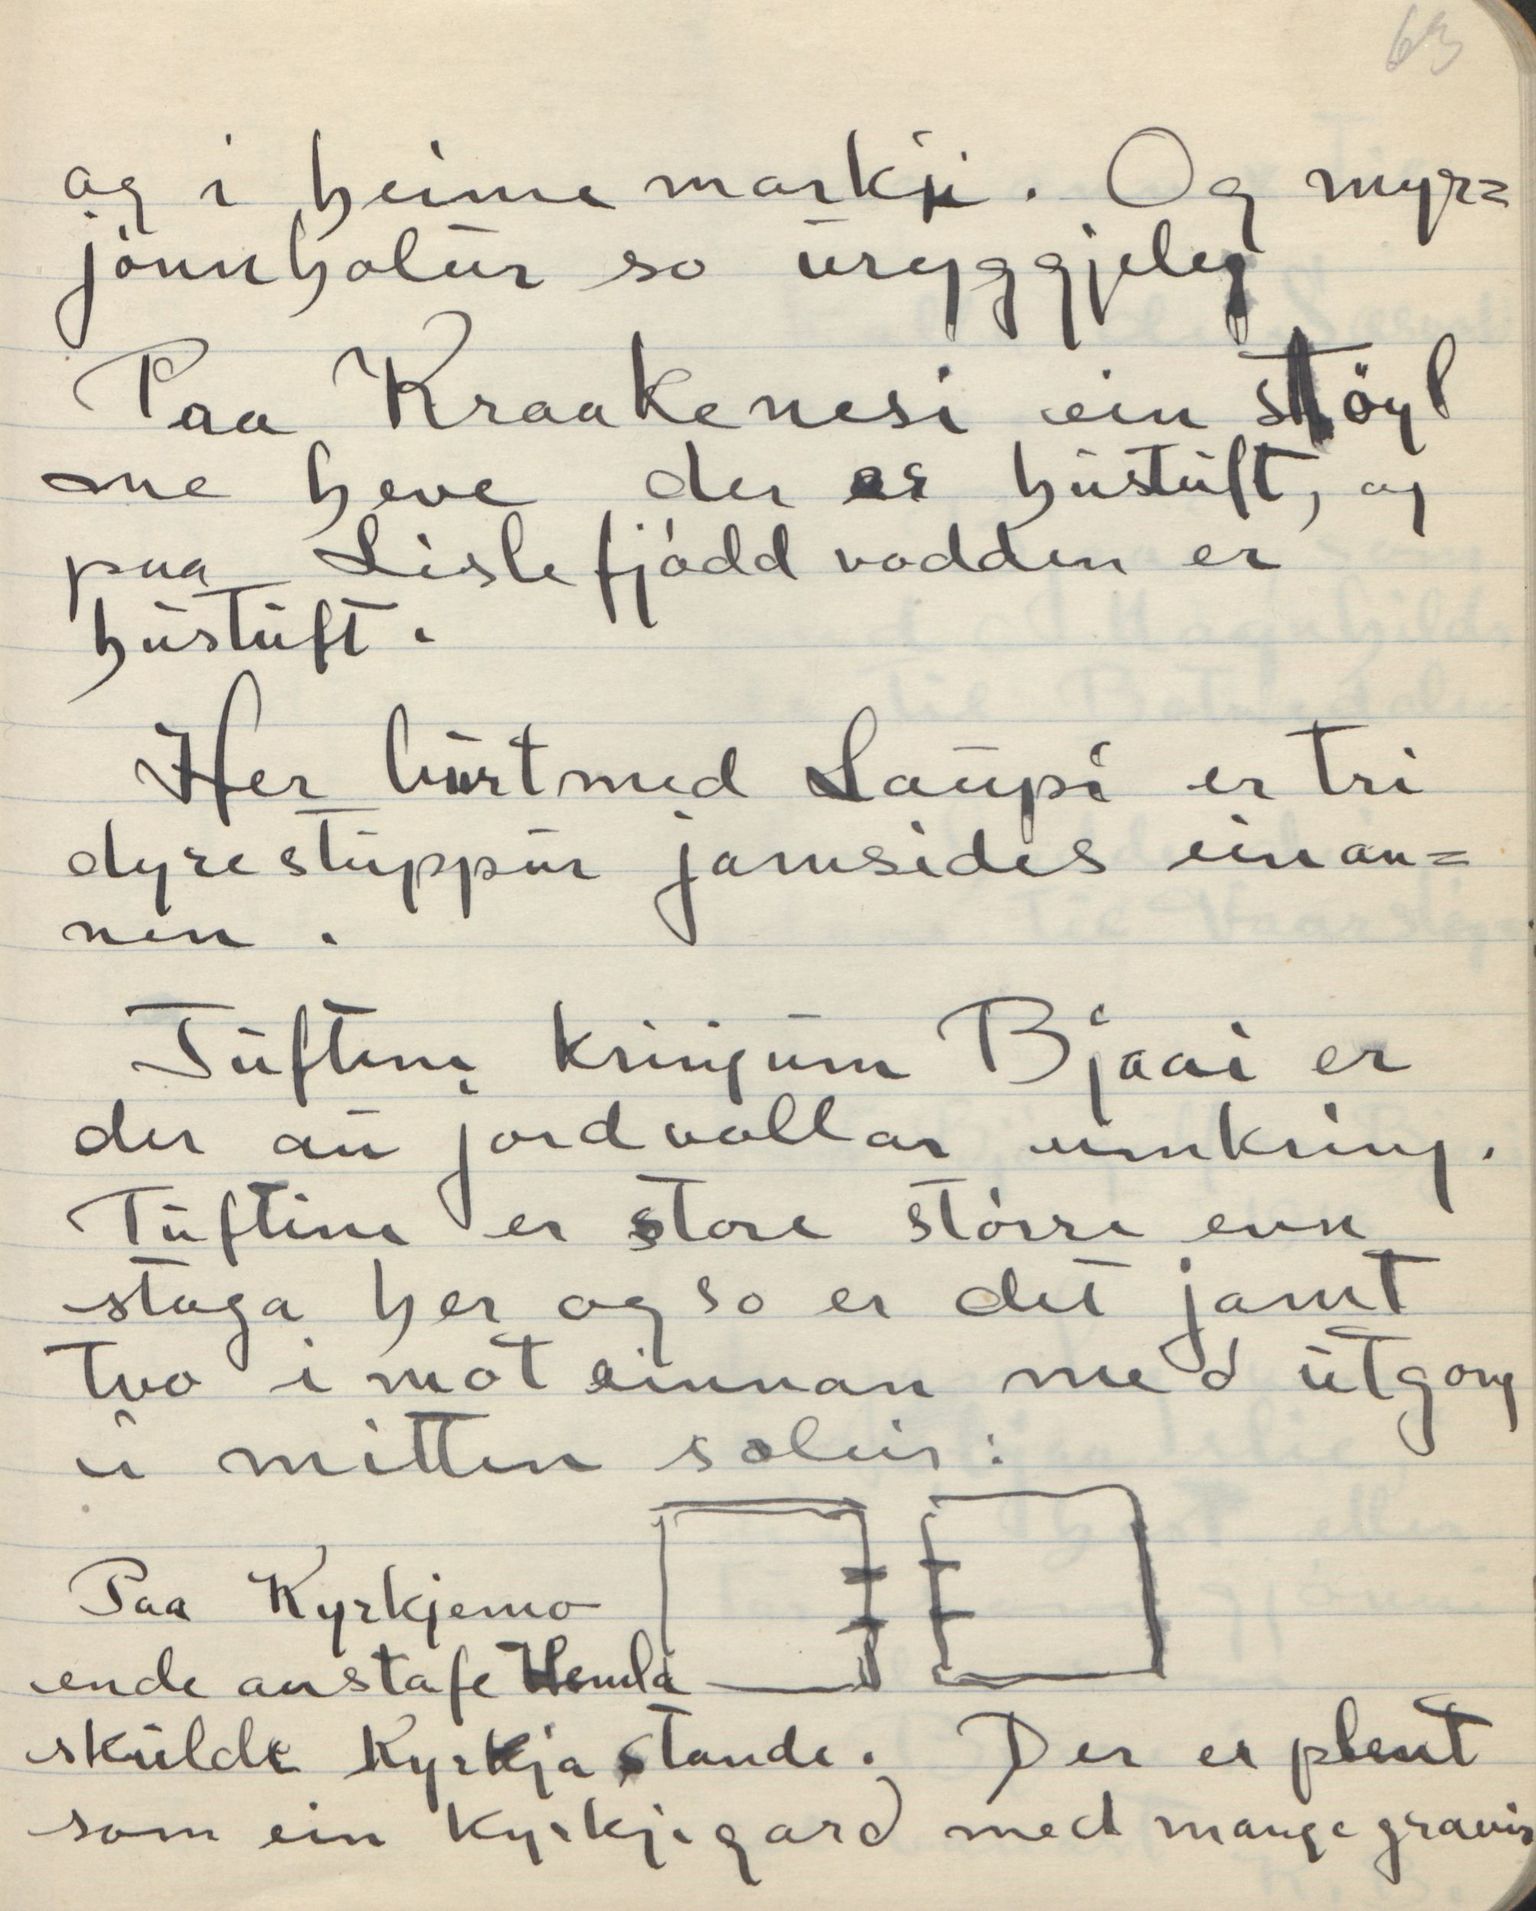 63
og i heimemarkji. Og myr=
jönnholur so uryggjeleg
Paa Kraakenesi ein støyl
me heve der er hustuft, og
paa Lislefjódd vodden er
hustuft.
Her burtmed Laupi er tri
dyrestuppur jamsides einan=
nen.
Tuftene kringum Bjaai er
der au jordvollar umkring.
Tuftine er store större enn
stoga her og so er det jamt
tvo i mot einnan med utgong
i mitten soleis:
Paa Kyrkjemo
ende anstafe Hemla
skulde Kyrkja stande. Der er plent
som ein kyrkjegard med mange gravir